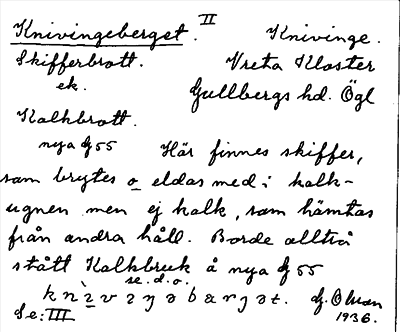 II
Knivingeberget. Knivinge.
Skifferbrott. Vreta Kloster
ek. Gullbergs hd. Ögl
Kalkbrott.
nya G 55 Här finnes skiffer,
som brytes o eldas med i kalk-
ugnen men ej kalk, som hämtas
från andra håll. Borde alltså
stått Kalkbruk å nya G 55
se. d. o.
G. Olson
Se: III 1936.